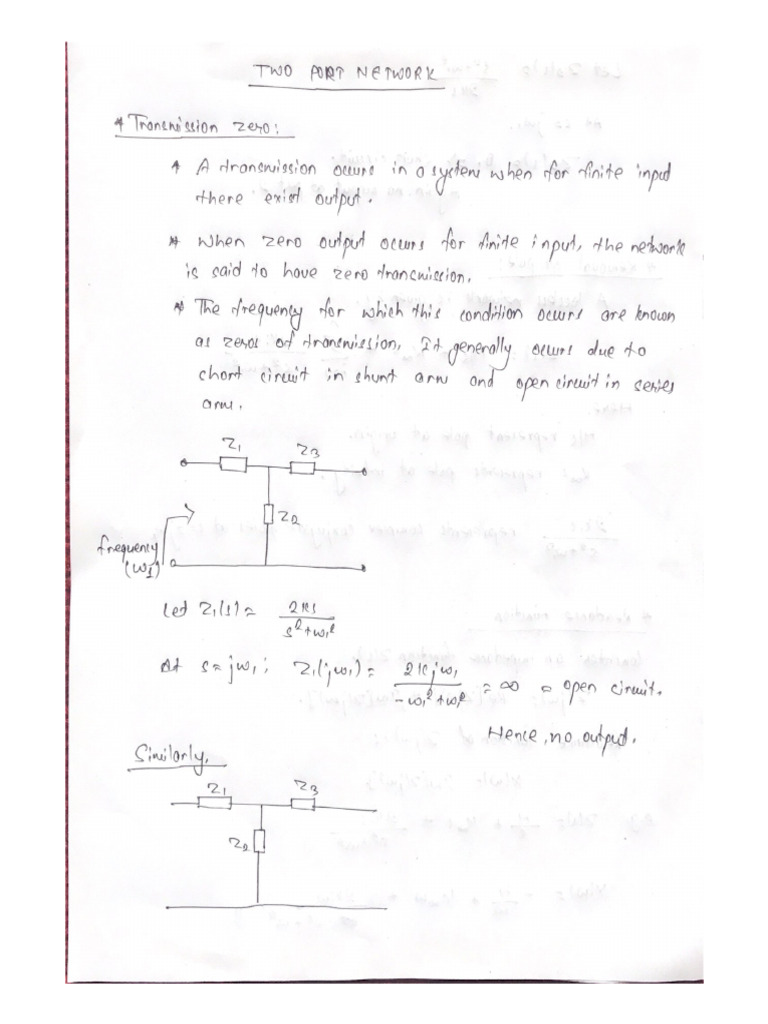 TWO PORT NETWORK
* Transmission zero:
* A transmission occurs in a system when for finite input
there exist output.
* When zero output occurs for finite input, the network
is said to have zero trancmission.
* The frequency for which this condition occurs are known
as zeros of transmission. It generally occurs due to
chort circuit in shunt arm and open circuit in series
arm.
Z1 Z3
Z2
frequency
(ω1)
Let Z1(s) = 2ks / s²+ω1²
At s = jω1; Z1(jω1) = 2kjω1 / -ω1²+ω1² = ∞ = open circuit.
Hence, no output.
Similarly,
Z1 Z3
Z2